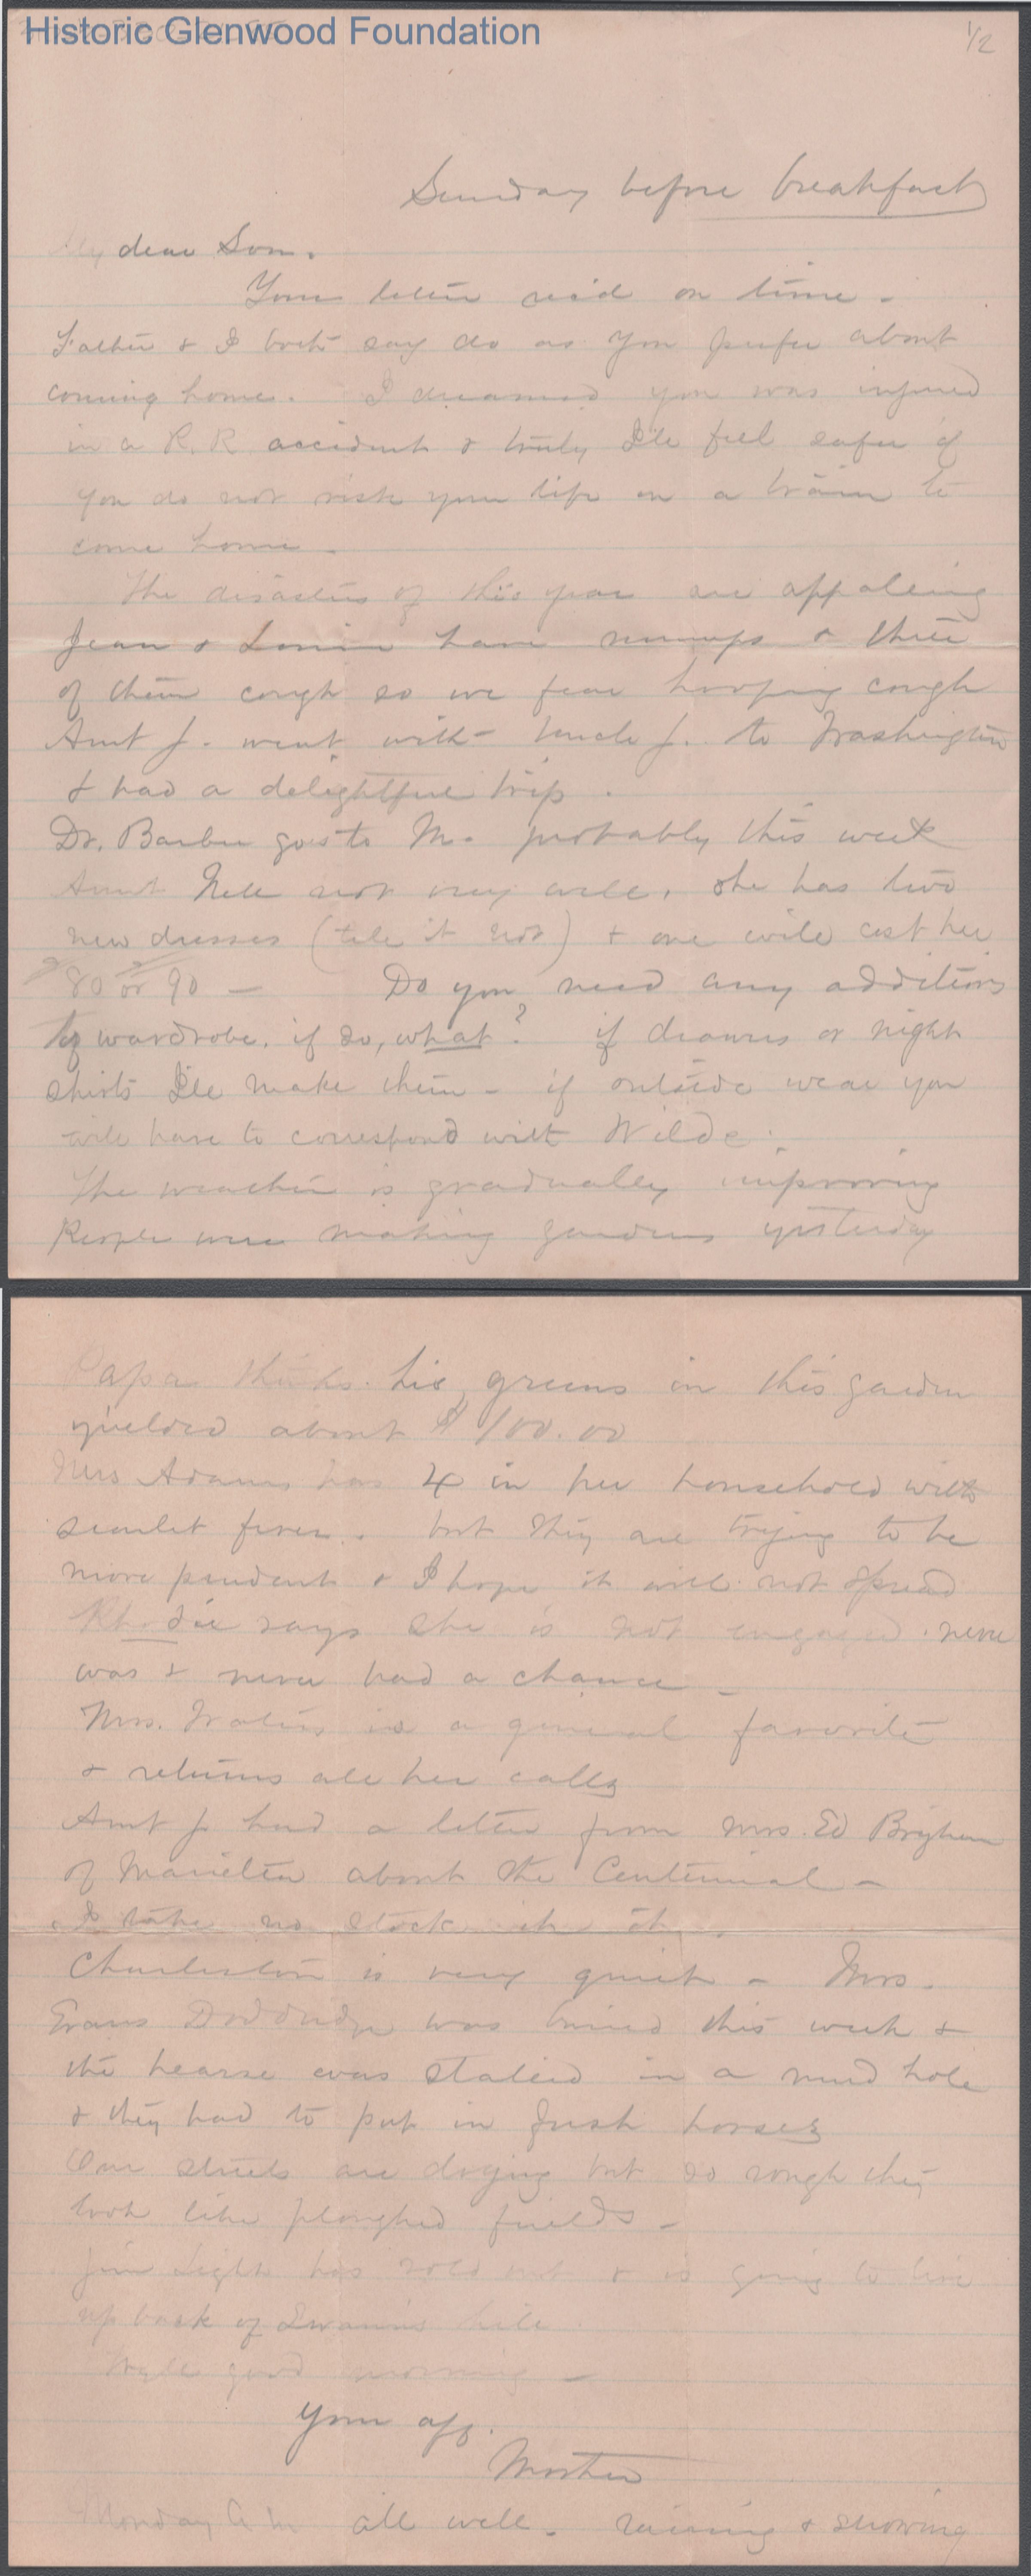 Historic Glenwood Foundation
1/2
Sunday before breakfast
My dear Son.
Your letter rec'd on time -
Father & I both say do as you prefer about
coming home. I dreamed you was injured
in a R.R accident & truly I'll feel safer if
you do not risk your life on a train to
come home -
The disasters of this year are appaleing
Jean & Louise have mumps & three
of them cough so we fear hooping cough
Aunt J. went with Uncle J. to Washington
& had a delightful trip.
Dr. Barber goes to Mo probably this week
Aunt Nell not very well, she has two
new dresses (tell it not) & one will cost her
80 or 90 - Do you need any additions
to wardrobe, if so, what? if drawers or night
shirts I'll make them - if outside wear you
will have to correspond with Wilde.
The weather is gradually improving
People were making gardens yesterday
Papa thinks his greens in this garden
yielded about $100.00
Mrs Adams has 4 in her household with
scarlet fever. but they are trying to be
more prudent & I hope it will not spread
says she is not engaged. never
was & never had a chance -
Mrs. is a general favorite
& returns all her calls
Aunt J. had a letter from Mrs. Ed Brigham
of Marietta about the Centennial -
I take no stock in it.
Charleston is very quiet - Mrs.
Evans Doddridge was buried this week &
the hearse was stalled in a mud hole
& they had to put in fresh horses
Our streets are drying but so rough they
look like ploughed fields -
Jim Light has sold out & is going to live
up back of Swann's hill.
Well good morning -
Your aff.
Mother
Monday A M all well - raining & snowing